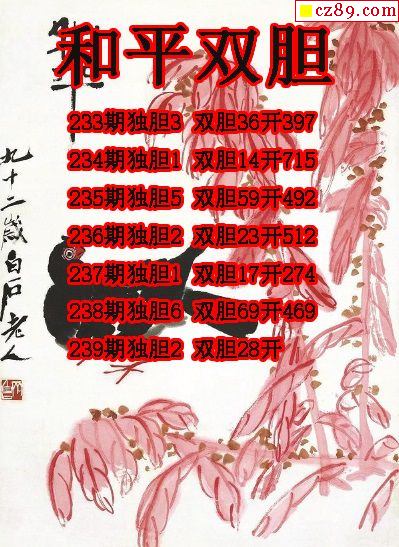 cz89.com
和平双胆
233期独胆3 双胆36开397
234期独胆1 双胆14开715
235期独胆5 双胆59开492
236期独胆2 双胆23开512
237期独胆1 双胆17开274
238期独胆6 双胆69开469
239期独胆2 双胆28开
九十二岁白石老人